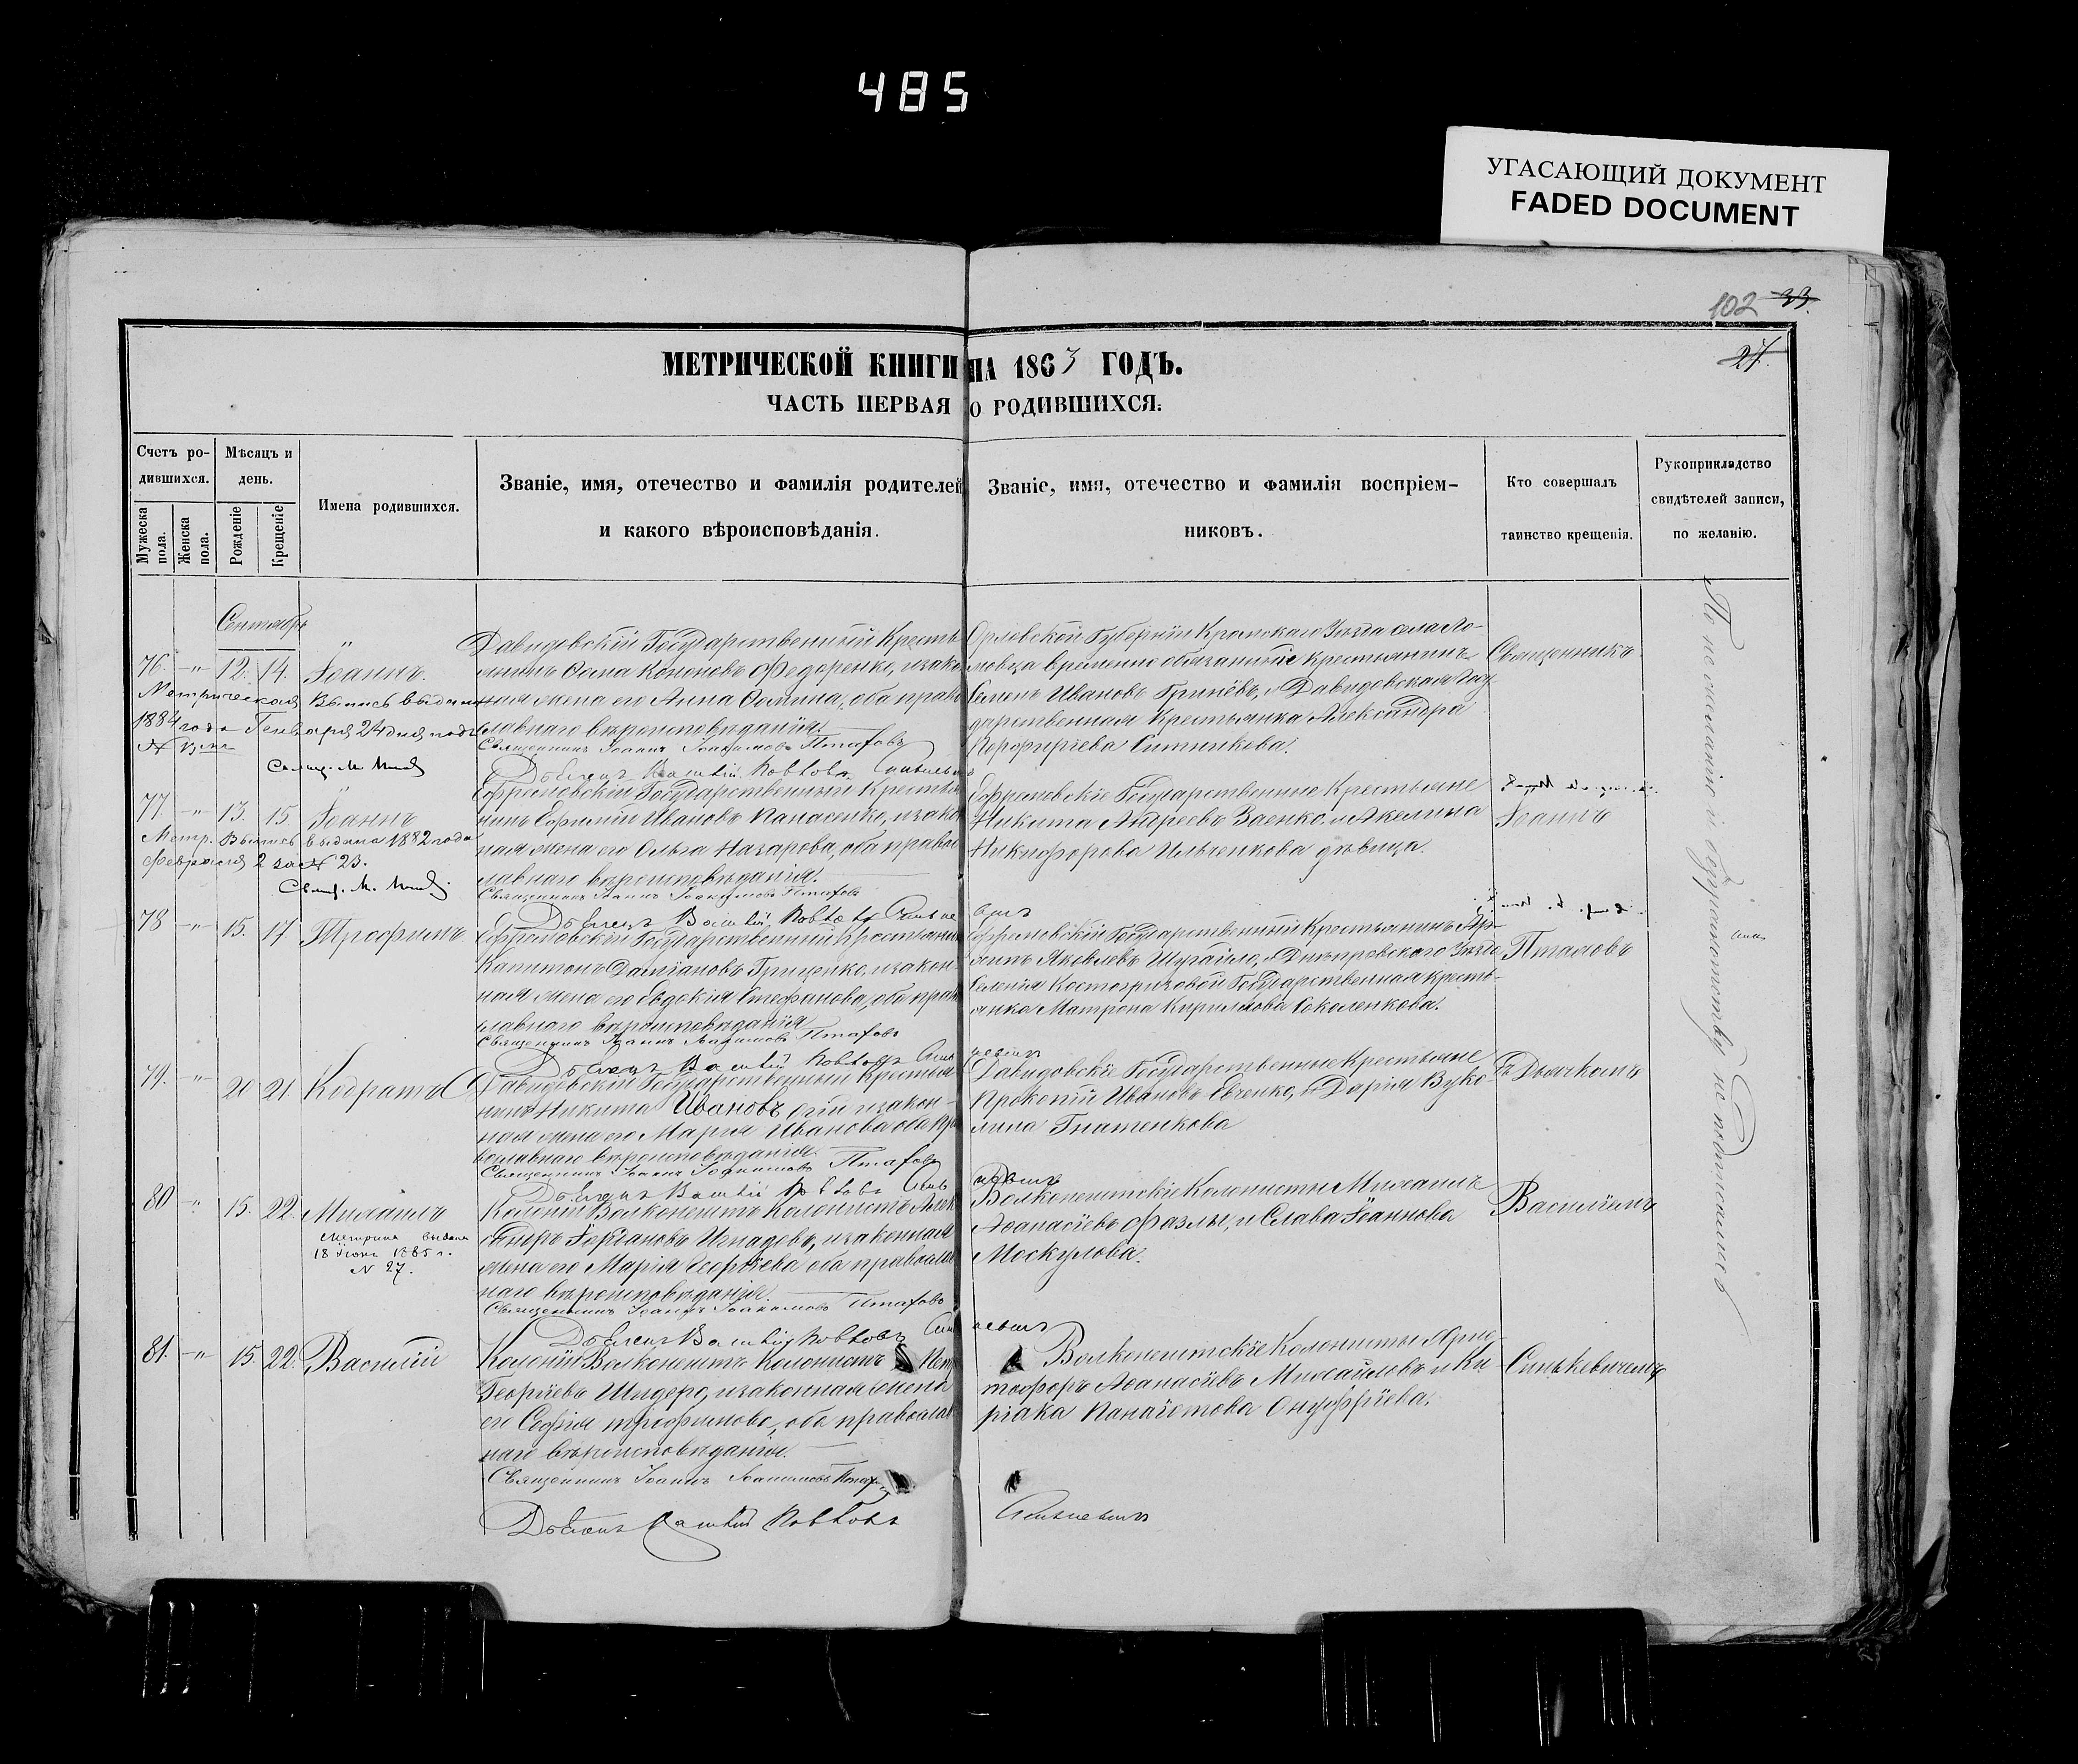 485
УГАСАЮЩИЙ ДОКУМЕНТ
FADED DOCUMENT
102 33.
27.
МЕТРИЧЕСКОЙ КНИГИ НА 1863 ГОДЪ.
ЧАСТЬ ПЕРВАЯ О РОДИВШИХСЯ.
Счетъ ро-
дившихся.
Мужеска
пола.
Женска
пола.
Мѣсяцъ и
день.
Рожденіе
Крещеніе
Имена родившихся.
Званіе, имя, отечество и фамилія родителей
и какого вѣроисповѣданія.
Званіе, имя, отечество и фамилія воспріем-
никовъ.
Кто совершалъ
таинство крещенія.
Рукоприкладство
свидѣтелей записи,
по желанію.
Сентябрь
76. -"- 12. 14. Іоаннъ.
Метрическая Выпись выдана
1884 года Генваря 24 дня подъ
Свящ. М.
Давидовскій Государственный Кресть-
янинъ Сила Кононовъ Федоренко, и закон-
ная жена его Анна Фомина, оба право-
славнаго вѣроисповѣданія.
Священникъ Іоаннъ Іоакимовъ Птаховъ
Дьячекъ Василій Ковтовъ
Орловской Губерніи Кромскаго Уѣзда села Ло-
мовца временно обязанный крестьянинъ
Семенъ Ивановъ Гринёвъ, и Давидовская Госу-
дарственная Крестьянка Александра
Порфиріева Ситникова.
Священникъ
77. -"- 13. 15. Іоаннъ
Метр. Выпись выдана 1882 года
Февраля 2 за N 23.
Свящ. М.
Ефремовскій Государственный Крестья-
нинъ Ефимій Ивановъ Панасенко, и закон-
ная жена его Ольга Назарова, оба право-
славнаго вѣроисповѣданія.
Священникъ Іоаннъ Іоакимовъ Птаховъ
Дьячекъ Василій Ковтовъ
Ефремовскіе Государственные Крестьяне
Никита Андреевъ Заенко, и Акелина
Никифорова Ильченкова дѣвица.
Іоаннъ
78 -"- 15. 17. Трофимъ
Ефремовскій Государственный Крестьянинъ
Капитонъ Даміановъ Гриценко, и закон-
ная жена его Евдокія Стефанова, оба право-
славнаго вѣроисповѣданія
Священникъ Іоаннъ Іоакимовъ Птаховъ
Дьячекъ Василій Ковтовъ
Ефремовскій Государственный Крестьянинъ Ар-
хипъ Яковлевъ Шугайло, и Днѣпровскаго Уѣзда
Селенія Костогризовой Государственная кресть-
янка Матрона Кириллова Соколенкова.
Птаховъ
79. -"- 20 21 Кодратъ
Давидовскій Государственный Крестья-
нинъ Никита Ивановъ и закон-
ная жена его Марія Иванова оба пра-
вославнаго вѣроисповѣданія.
Священникъ Іоаннъ Іоакимовъ Птаховъ
Дьячекъ Василій Ковтовъ
Давидовскіе Государственные Крестьяне
Прокопій Ивановъ Евченко, и Дарія Вуко-
лила Гнатенкова
Съ Дьячкомъ
80 -"- 15. 22. Михаилъ
Метрика выдана
18 Іюня 1885 г.
N 27.
Колоніи Волконештъ Колонистъ Алек-
сандръ Іорданов и законная
жена его Марія Георгіева оба православ-
наго вѣроисповѣданія.
Священникъ Іоаннъ Іоакимовъ Птаховъ
Дьячекъ Василій Ковтовъ
Волконештскіе Колонисты Михаилъ
Аѳанасіевъ Фазлы, и Слава Іоаннова
Москулова.
Василіемъ
81. -"- 15. 22. Василій
Колоніи Волконештъ Колонистъ
Георгіевъ и законная жена
его Софія Трофимова, оба православ-
наго вѣроисповѣданія.
Священникъ Іоаннъ Іоакимовъ
Дьячекъ Василій Ковтовъ
Волконештскіе Колонисты Хрис-
тофоръ Аѳанасіевъ Михайловъ и Ки-
ріака Панаіотова Онуффріева.
Синькевичемъ
По не желанію и безграмотству не подписались